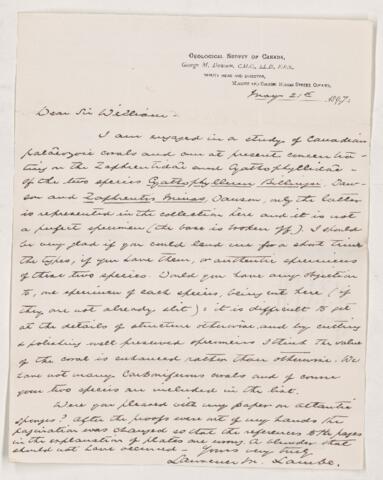 GEOLOGICAL SURVEY OF CANADA,
George M. Dawson, C.M.G., LL.D., F.R.S.
DEPUTY HEAD AND DIRECTOR,
Sussex Street Ottawa,
May 21st 1897.
Dear Sir William -
I am engaged in a study of Canadian
palæozoic corals and am at present concentra-
ting on the Zaphrentidæ and Cyathophyllidæ -
of the two species Cyathophyllum Billingsi, Daw-
son and Zaphrentis Minas, Dawson, only the latter
is represented in the collection here and it is not
a perfect specimen (the base is broken off). I should
be very glad if you could lend me for a short time
the types, if you have them, or authentic specimens
of these two species. Would you have any objection
to, one specimen of each species, being cut here (if
they are not already slit): it is difficult to get
at the details of structure otherwise and by cutting
& polishing well preserved specimens I think the value
of the coral is enhanced rather than otherwise. We
have not many Carboniferous corals and of course
your two species are included in the list.
Were you pleased with my paper on Atlantic
sponges? After the proofs were out of my hands the
pagination was changed so that the references to the pages
in the explanation of plates are wrong. A blunder that
should not have occurred - Yours very truly
Lawrence M. Lambe.